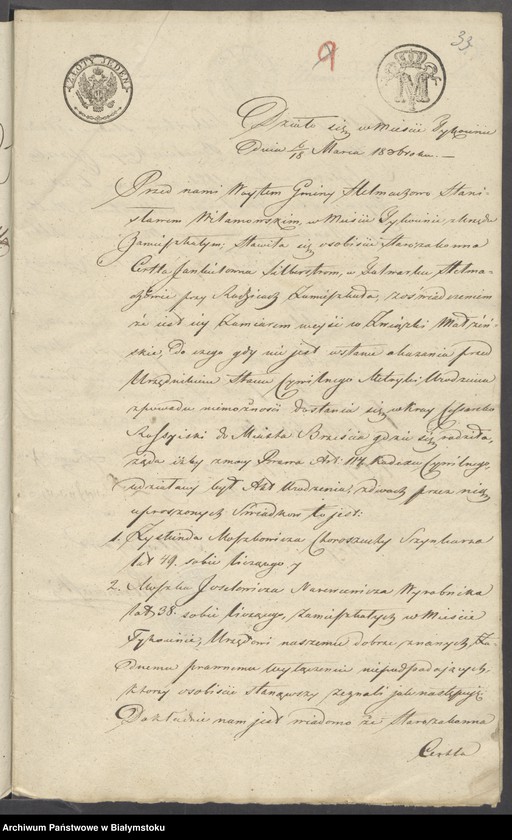 33.
9
ZŁOTY JEDEN
M
Działo się w Mieście Tykocinie
Dnia 6/18 Marca 1826 roku. —
Przed nami Woytem Gminy Stelmachowo Stani-
sławem Wilamowskim, w Mieście Tykocinie z Urzędu
Zamieszkałym, Stawiła się osobiście Starozakonna
Certla Jankielowna Silberstrom, w Folwarku Stelma-
chowie przy Rodzicach Zamieszkała, z oświadczeniem
że iest iey Zamiarem weyść w Związki Małżeń-
skie, Do czego gdy nie jest wstanie okazania przed
Urzędnikiem Stanu Cywilnego Metryki Urodzenia
zpowodu niemożności dostania się w Kray Cesarsko
Rossyiski do Miasta Brześcia gdzie się rodziła,
żąda iżby z mocy Prawa Art: 117 Kodexu Cywilnego,
udziałany był Akt Urodzenia, z dwóch przez nią
uproszonych Świadków to jest:
1. Zystunda Moszkowicza Choroszuchy Szynkarza
lat 49. sobie liczącego, y
2. Moszka Joselowicza Narewowicza Wyrobnika
lat 38. sobie liczącego, zamieszkałych w Mieście
Tykocinie, Urzędowi naszemu dobrze znanych, Ża-
dnemu prawnemu wyłączeniu niepodpadaiących,
ktorzy osobiście stanąwszy zeznali jak następuię:
Dokładnie nam jest wiadomo że Starozakonna
Certla
Archiwum Państwowe w Białymstoku